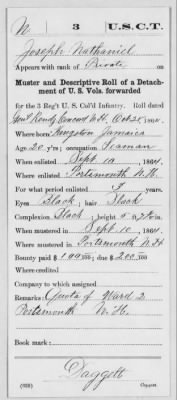 N | 3 | U.S.C.T.
Joseph Nathaniel
Appears with rank of Private on
Muster and Descriptive Roll of a Detach-
ment of U. S. Vols. forwarded
for the 3 Reg't U. S. Col'd Infantry. Roll dated
Rendz Concord N.H. Oct 25, 1864.
Where born Kingston Jamaica
Age 20 y'rs; occupation Seaman
When enlisted Sept 10, 1864.
Where enlisted Portsmouth N.H.
For what period enlisted years.
Eyes Black; hair Black
Complexion Black; height 5 ft. in.
When mustered in Sept 10, 1864.
Where mustered in Portsmouth N.H
Bounty paid $ 100; due $ 200
Where credited
Company to which assigned
Remarks: Quota of Ward 2
Portsmouth N. H.
Book mark:
Daggett
(639) Copyist.